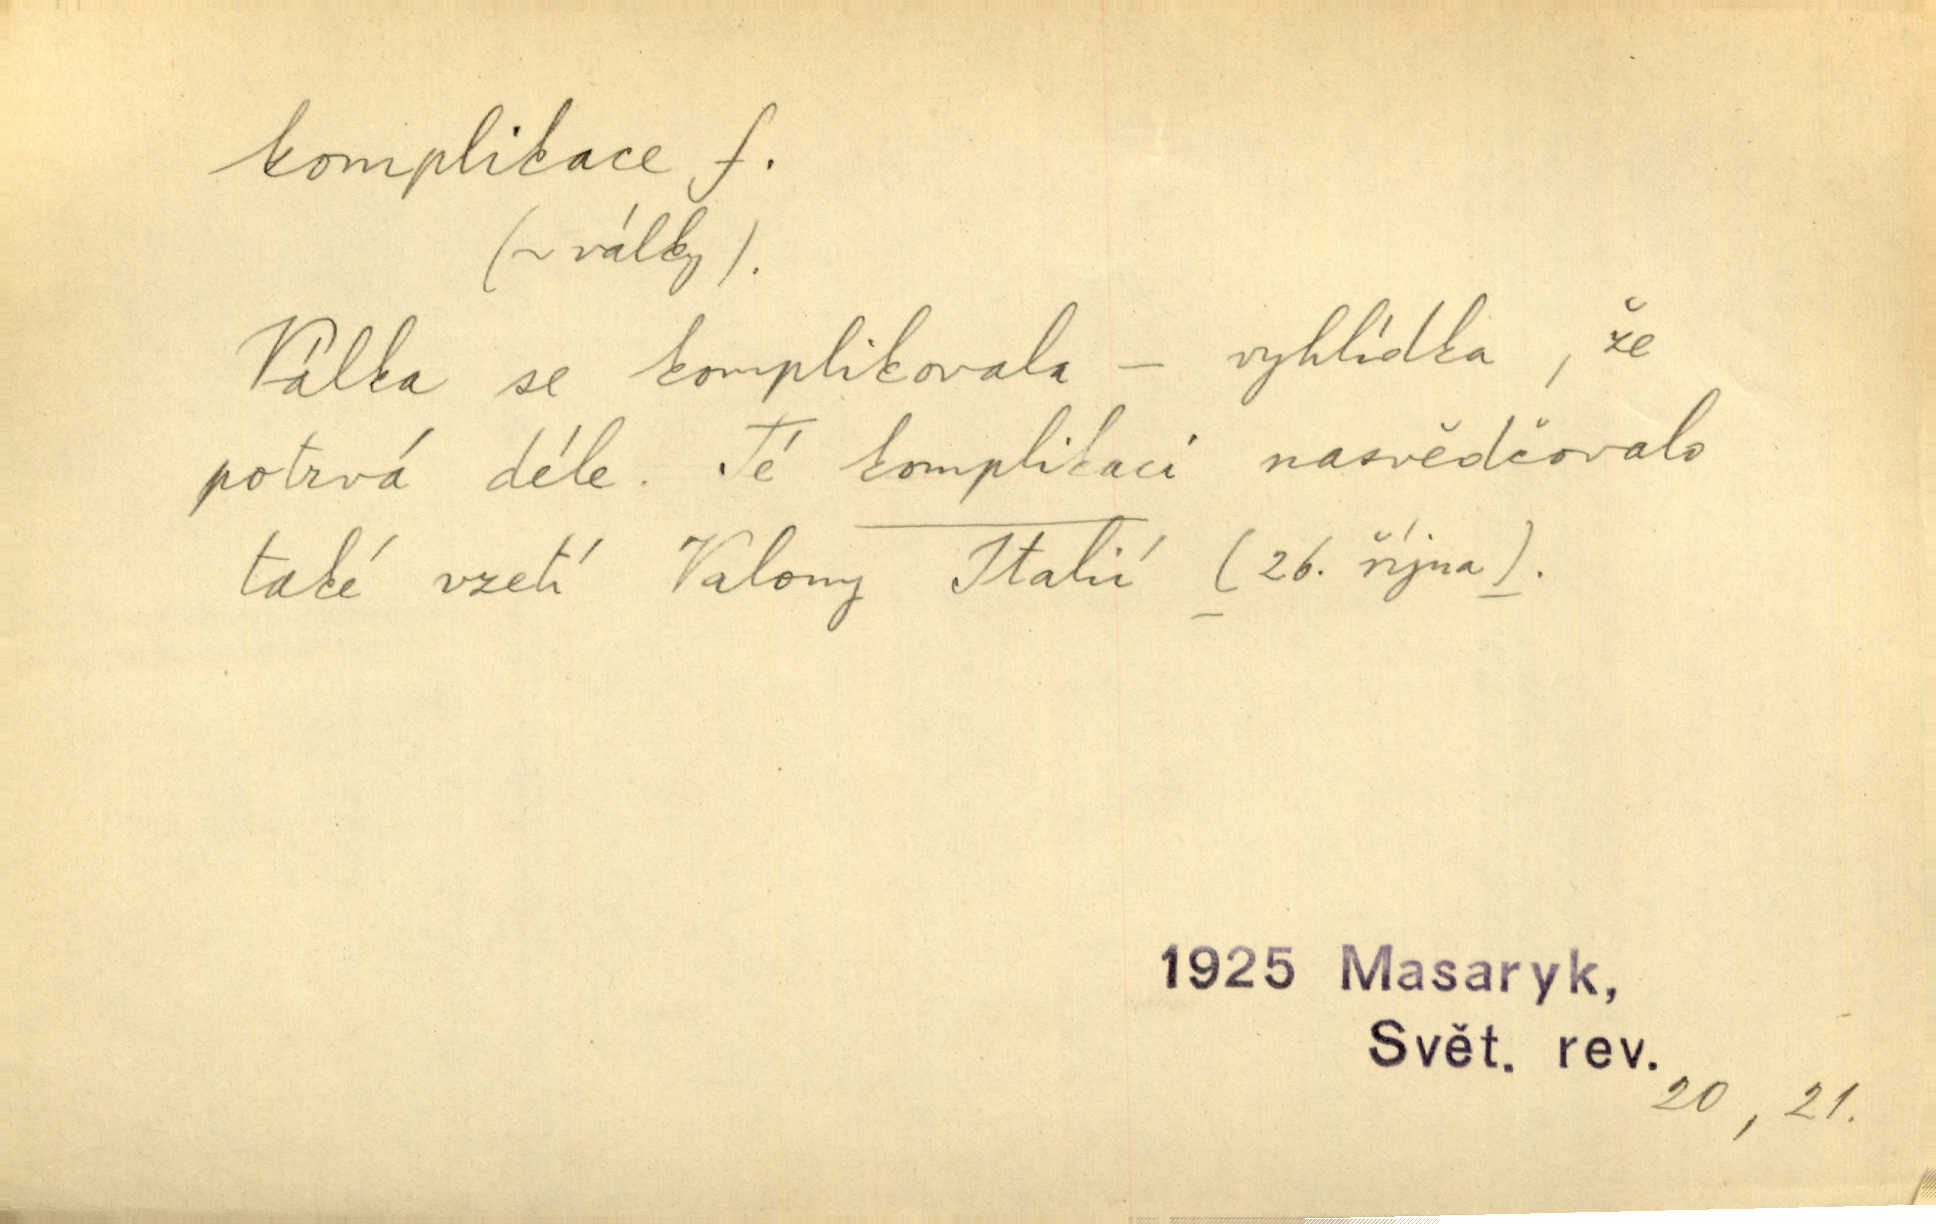 komplikace f.
(~ války).
Válka se komplikovala – vyhlídka, že
potrvá déle. Té komplikaci nasvědčovalo
také vzetí Valony Italií (26. října).
1925 Masaryk,
Svět. rev.
20, 21.